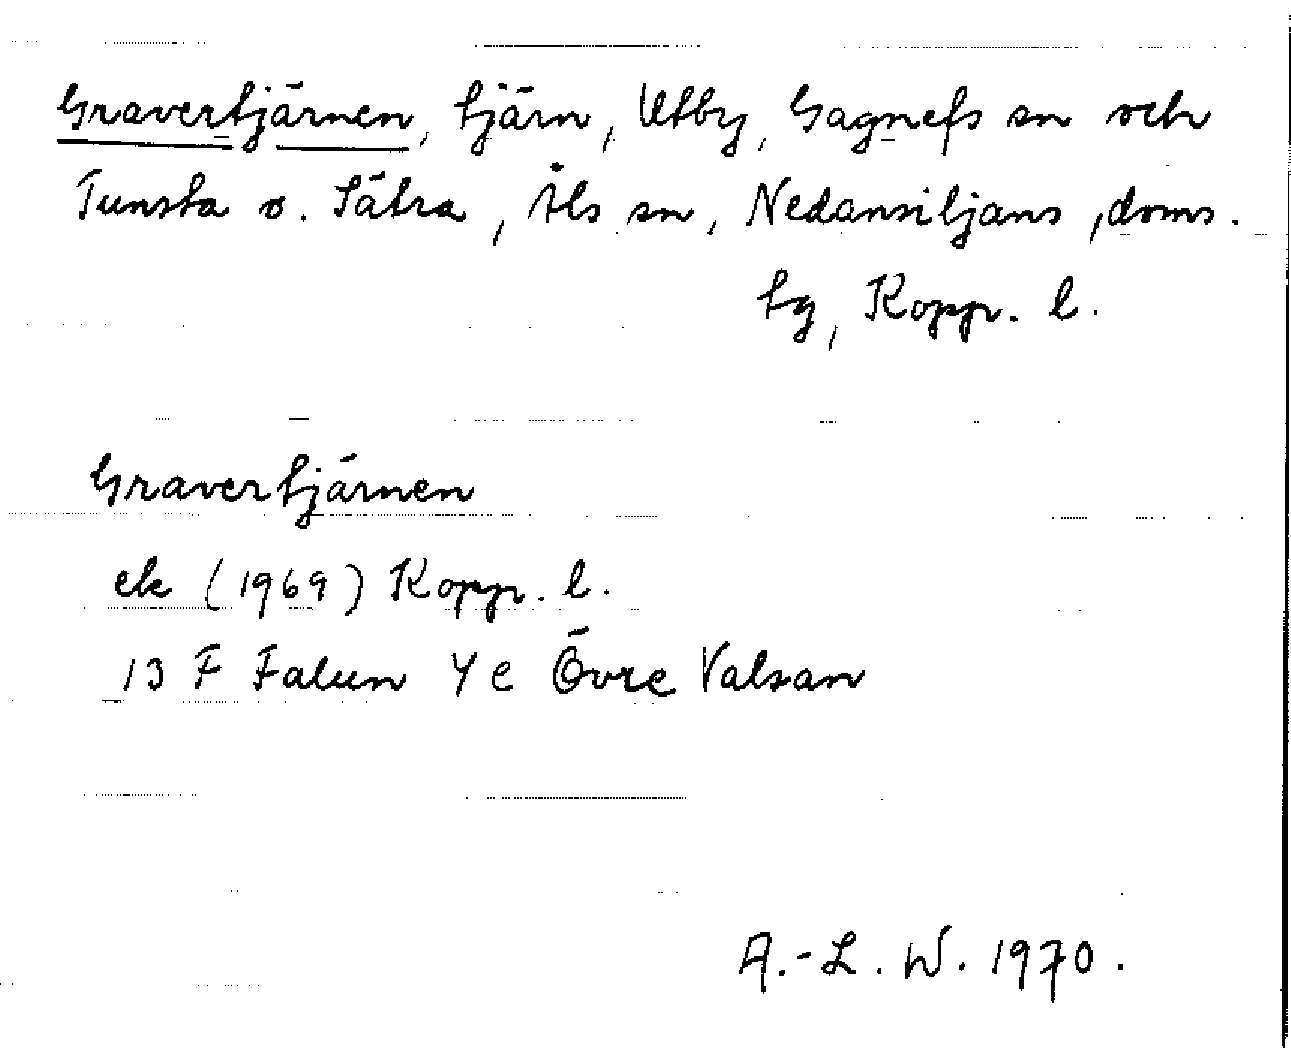 Gravertjärnen, tjärn, Utby, Gagnefs sn och
Tunsta o. Sätra, Åls sn, Nedansiljans, doms.
tg, Kopp. l.
Gravertjärnen
ek (1969) Kopp. l.
13 F Falun 4 c Övre Valsan
A.-L. W. 1970.